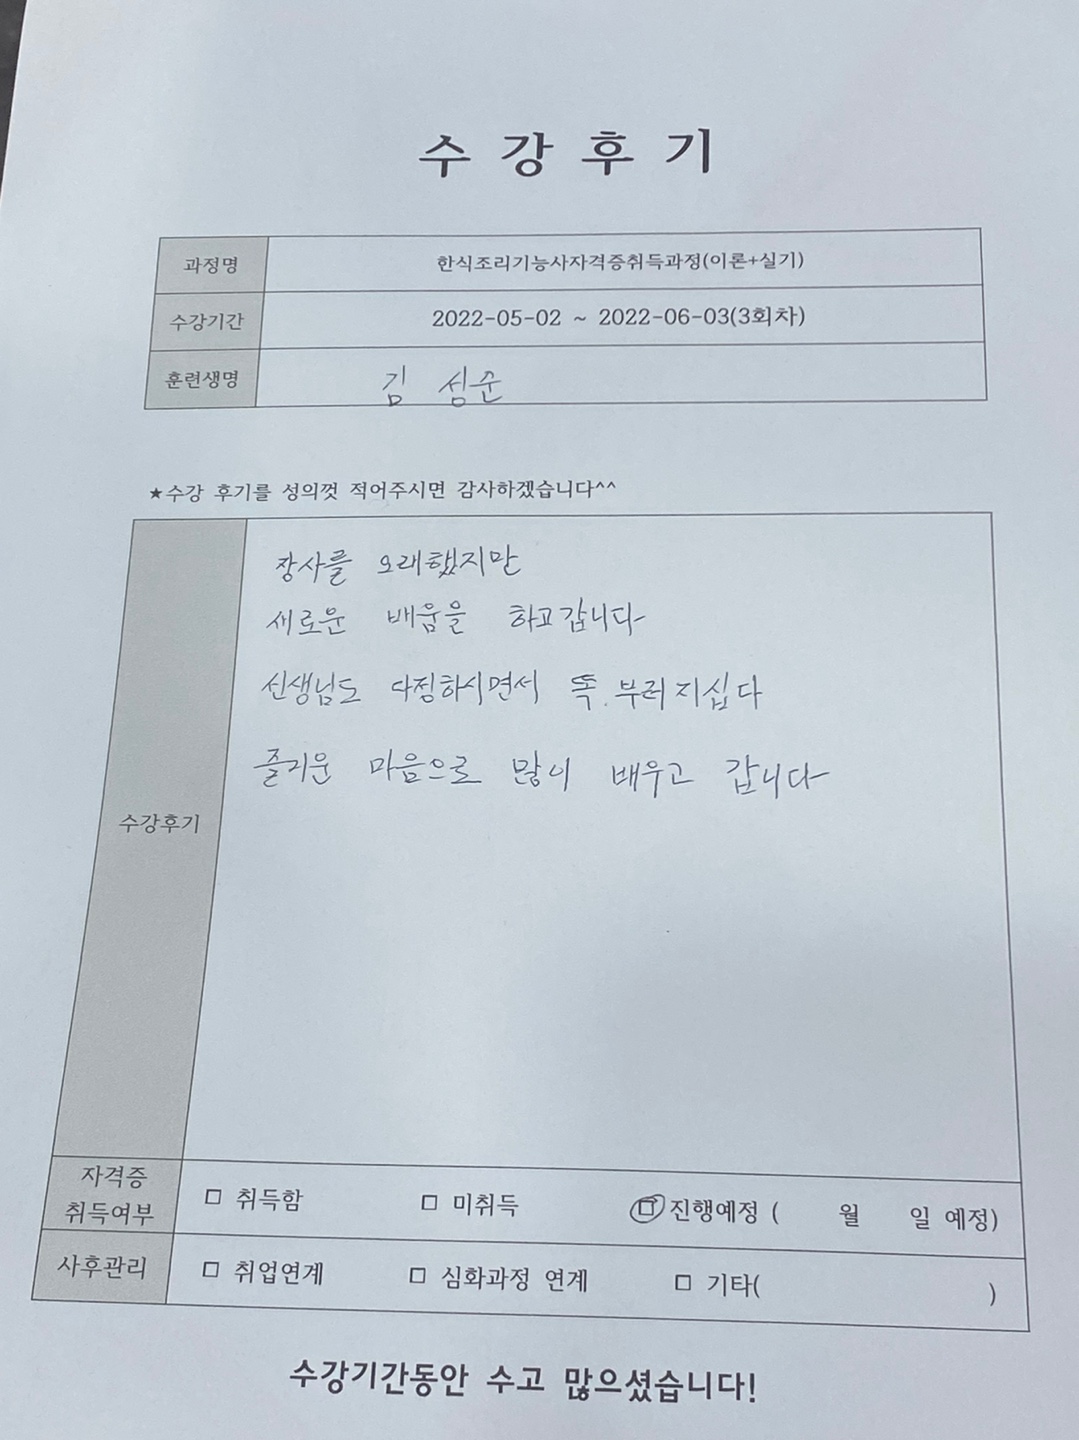 수 강 후 기
과정명 한식조리기능사자격증취득과정(이론+실기)
수강기간 2022-05-02 ~ 2022-06-03(3회차)
훈련생명 김 성준
★수강 후기를 성의껏 적어주시면 감사하겠습니다^^
수강후기
장사를 오래했지만
새로운 배움을 하고갑니다
선생님도 다정하시면서 똑.부러지십다
즐거운 마음으로 많이 배우고 갑니다
자격증
취득여부 □ 취득함 □ 미취득 □ 진행예정 ( 월 일 예정)
사후관리 □ 취업연계 □ 심화과정 연계 □ 기타( )
수강기간동안 수고 많으셨습니다!